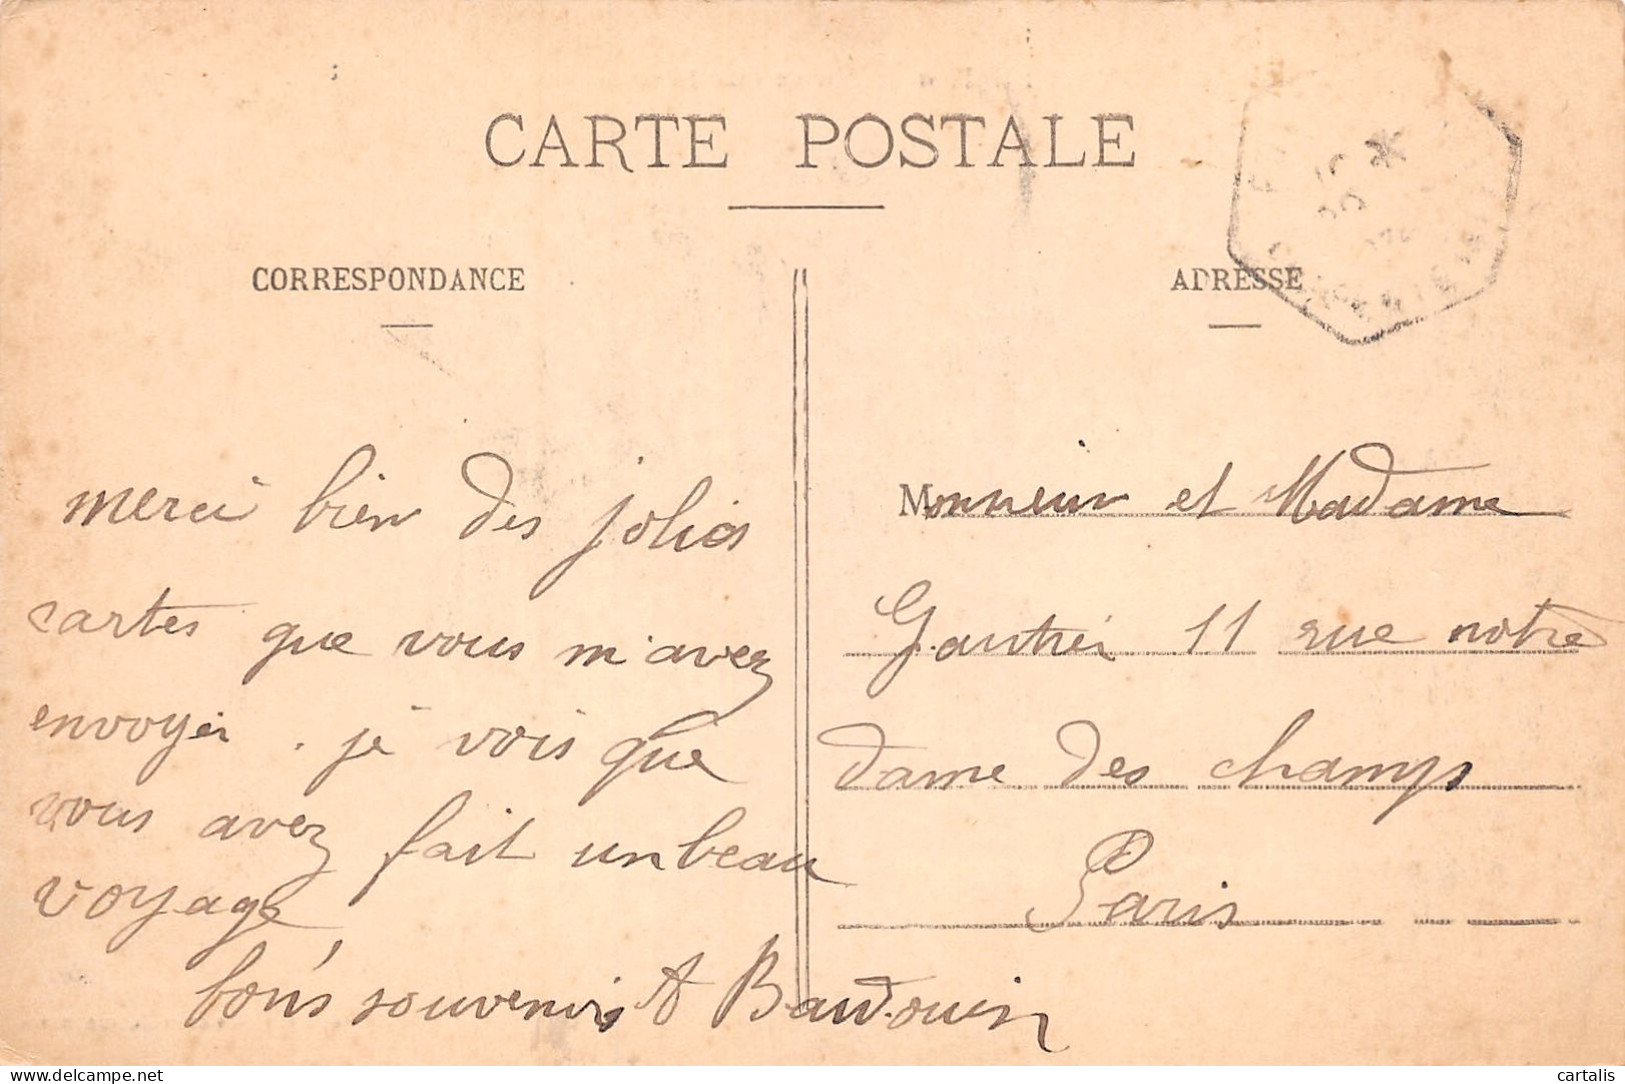 CARTE POSTALE
CORRESPONDANCE
merci bien des jolies
cartes que vous m'avez
envoyér. je vois que
vous avez fait un beau
voyage
bons souvenirs A Baudouin
ADRESSE
Monsieur et Madame
Gautier 11 rue notre
dame des champs
Paris
www.delcampe.net
cartalis